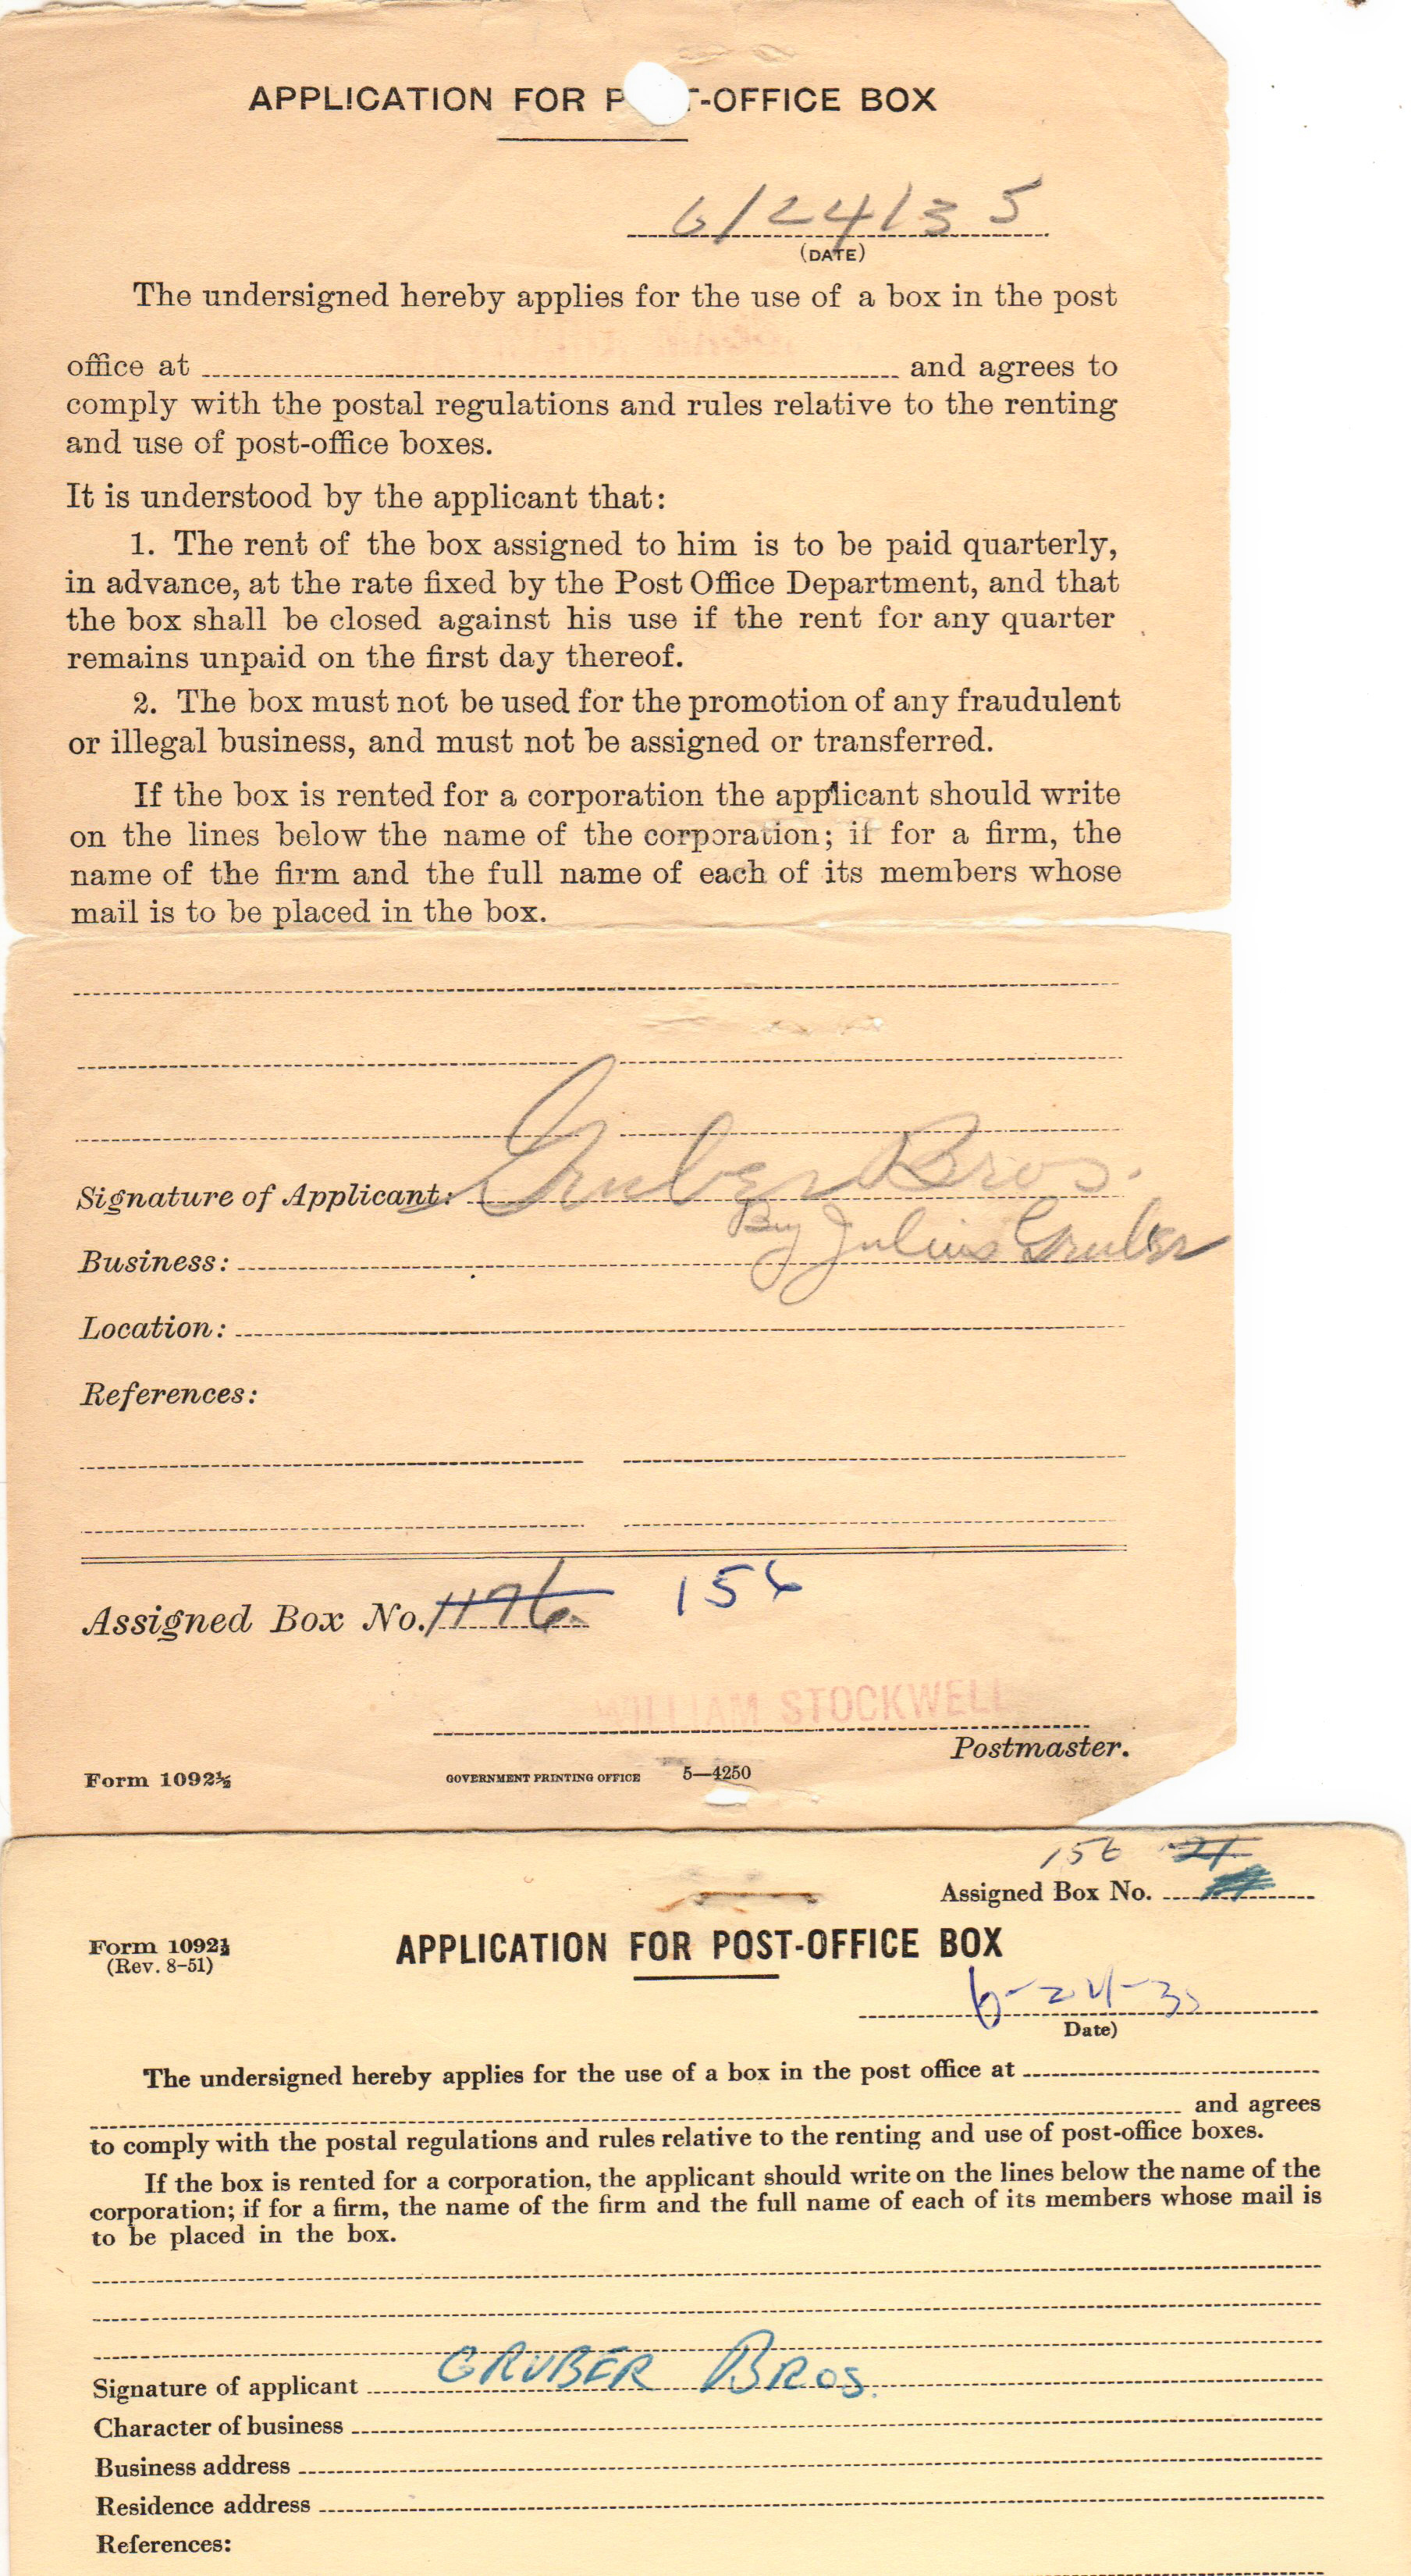 APPLICATION FOR P T-OFFICE BOX
6/24/35
(DATE)
The undersigned hereby applies for the use of a box in the post
office at and agrees to
comply with the postal regulations and rules relative to the renting
and use of post-office boxes.
It is understood by the applicant that:
1. The rent of the box assigned to him is to be paid quarterly,
in advance, at the rate fixed by the Post Office Department, and that
the box shall be closed against his use if the rent for any quarter
remains unpaid on the first day thereof.
2. The box must not be used for the promotion of any fraudulent
or illegal business, and must not be assigned or transferred.
If the box is rented for a corporation the applicant should write
on the lines below the name of the corporation; if for a firm, the
name of the firm and the full name of each of its members whose
mail is to be placed in the box.
Signature of Applicant: Gruber Bros.
By Julius Gruber
Business:
Location:
References:
Assigned Box No. 1196 156
WILLIAM STOCKWELL
Postmaster.
Form 1092½ GOVERNMENT PRINTING OFFICE 5—4250
156 21
Assigned Box No.
Form 1092½
(Rev. 8-51)
APPLICATION FOR POST-OFFICE BOX
6-24-35
Date)
The undersigned hereby applies for the use of a box in the post office at
and agrees
to comply with the postal regulations and rules relative to the renting and use of post-office boxes.
If the box is rented for a corporation, the applicant should write on the lines below the name of the
corporation; if for a firm, the name of the firm and the full name of each of its members whose mail is
to be placed in the box.
Signature of applicant GRUBER BROS.
Character of business
Business address
Residence address
References: